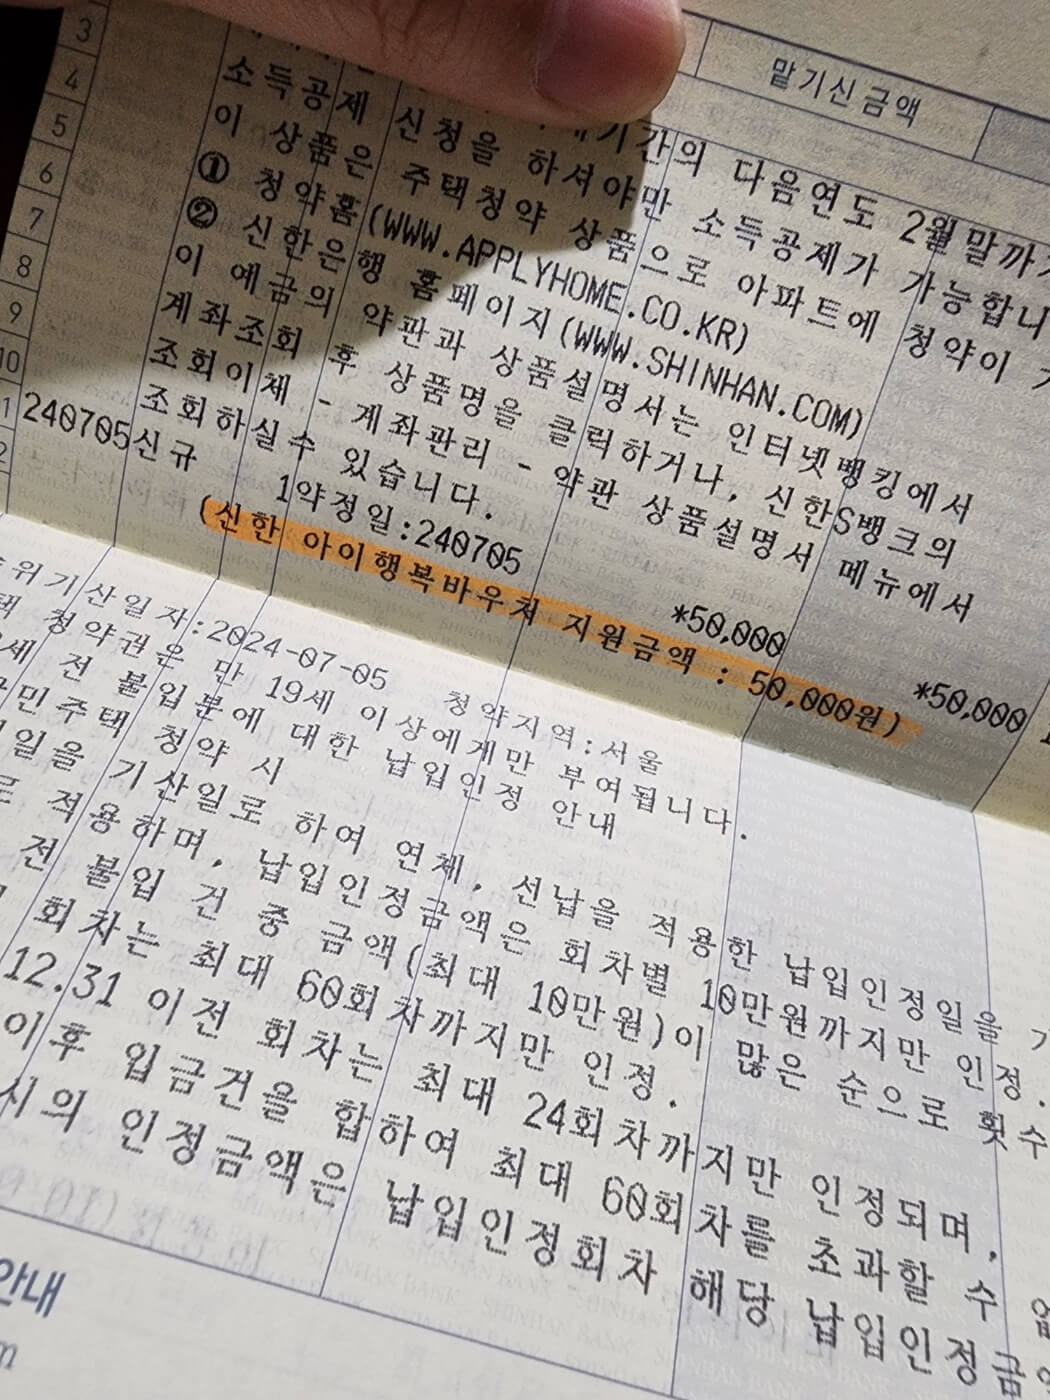 맡기신 금액
3
의 다음연도 2월말까지
4
소득공제 신청을 하셔야만 소득공제가 가능합니
5
이 상품은 주택청약 상품으로 아파트에 청약이
6
① 청약홈(WWW.APPLYHOME.CO.KR)
7
② 신한은행 홈페이지(WWW.SHINHAN.COM)
8
이 예금의 약관과 상품설명서는 인터넷뱅킹에서
9
계좌조회 후 상품명을 클릭하거나, 신한S뱅크의
10
조회이체 - 계좌관리 - 약관 상품설명서 메뉴에서
조회하실수 있습니다.
240705신규 1약정일:240705 *50,000 *50,000
(신한 아이행복바우처 지원금액 : 50,000원)
위기산일자:2024-07-05 청약지역:서울
청약권은 만 19세 이상에게만 부여됩니다.
전 불입분에 대한 납입인정 안내
민주택 청약 시
일을 기산일로 하여 연체, 선납을 적용한 납입인정일을
적용하며, 납입인정금액은 회차별 10만원까지만 인정.
전 불입 건 중 금액(최대 10만원)이 많은 순으로 횟수
회차는 최대 60회차까지만 인정.
12.31 이전 회차는 최대 24회차까지만 인정되며,
이후 입금건을 합하여 최대 60회차를 초과할 수
시의 인정금액은 납입인정회차 해당 납입인정금
안내